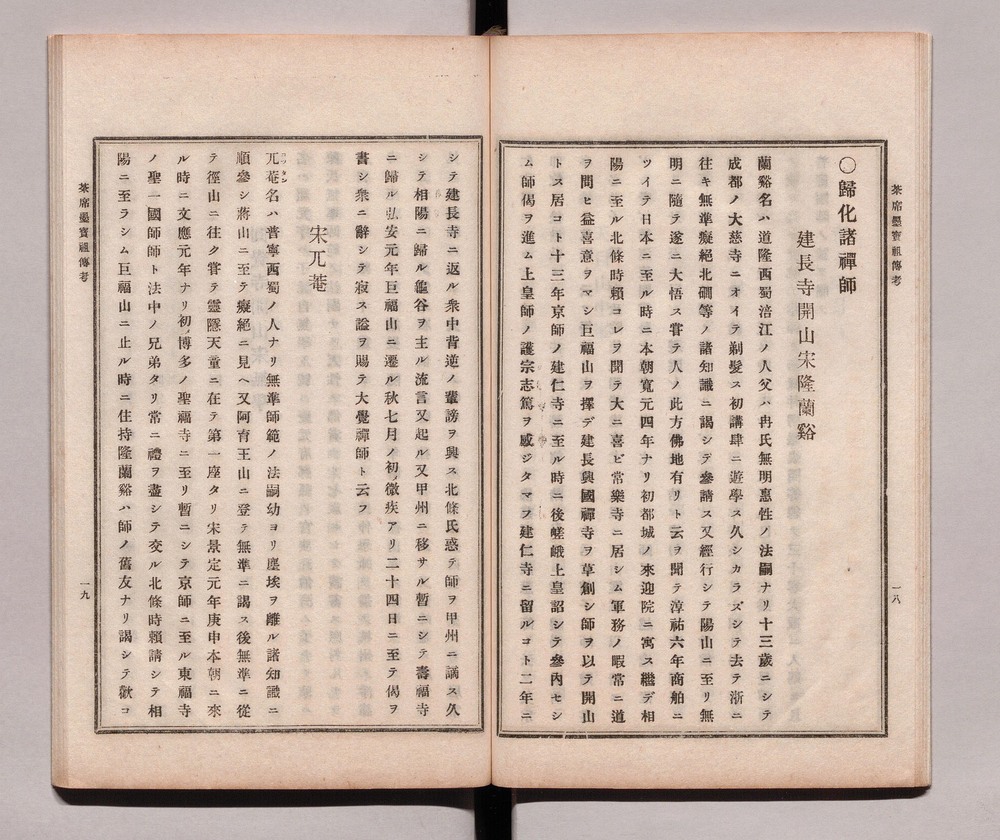 茶席墨寳祖傳考
一八
〇歸化諸禪師
建長寺開山宋隆蘭谿
蘭谿名ハ道隆西蜀涪江ノ人父ハ冉氏無明惠性ノ法嗣ナリ十三歲ニシテ
成都ノ大慈寺ニオイテ剃髮ス初講肆ニ遊學ス久シカラズシテ去テ浙ニ
往キ無準癡絕北磵等ノ諸知識ニ謁シテ參請ス又經行シテ陽山ニ至リ無
明ニ隨テ遂ニ大悟ス嘗テ人ノ此方佛地有リト云ヲ聞テ淳祐六年商舶ニ
ツイテ日本ニ至ル時ニ本朝寬元四年ナリ初都城ノ來迎院ニ寓ス繼デ相
陽ニ至ル北條時賴コレヲ聞テ大ニ喜ビ常樂寺ニ居シム軍務ノ暇常ニ道
ヲ問ヒ益喜意ヲマシ巨福山ヲ擇デ建長興國禪寺ヲ草創シ師ヲ以テ開山
トス居コト十三年京師ノ建仁寺ニ至ル時ニ後嵯峨上皇詔シテ參內セシ
ム師偈ヲ進ム上皇師ノ護宗志篤ヲ感ジタマフ建仁寺ニ留ルコト二年ニ
シテ建長寺ニ返ル衆中背逆ノ輩謗ヲ興ス北條氏惑テ師ヲ甲州ニ謫ス久
シテ相陽ニ歸ル龜谷ヲ主ル流言又起ル又甲州ニ移サル暫ニシテ壽福寺
ニ歸ル弘安元年巨福山ニ遷ル秋七月ノ初微疾アリ二十四日ニ至テ偈ヲ
書シ衆ニ辭シテ寂ス謚ヲ賜テ大覺禪師ト云フ
宋兀菴
兀菴名ハ普寧西蜀ノ人ナリ無準師範ノ法嗣幼ヨリ塵埃ヲ離ル諸知識ニ
順參シ蔣山ニ至テ癡絕ニ見ヘ又阿育王山ニ登テ無準ニ謁ス後無準ニ從
テ徑山ニ往ク嘗テ靈隱天童ニ在テ第一座タリ宋景定元年庚申本朝ニ來
ル時ニ文應元年ナリ初博多ノ聖福寺ニ至リ暫ニシテ京師ニ至ル東福寺
ノ聖一國師師ト法中ノ兄弟タリ常ニ禮ヲ盡シテ交ル北條時賴請シテ相
陽ニ至ラシム巨福山ニ止ル時ニ住持隆蘭谿ハ師ノ舊友ナリ謁シテ歡コ
茶席墨寳祖傳考
一九